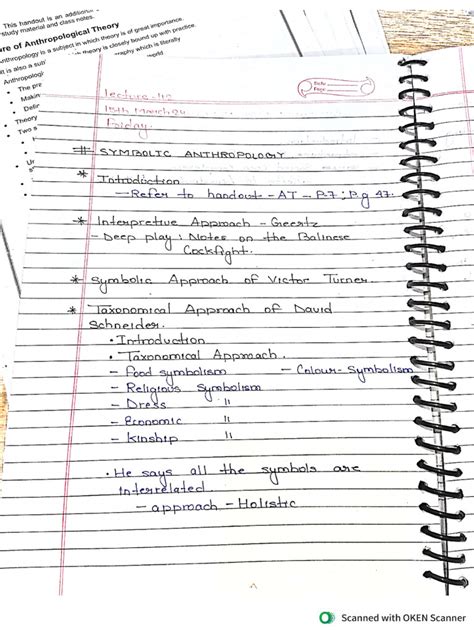 This handout is an
study material and class notes.
re of Anthropological Theory
Anthropology is a subject in which theory is of great importance.
It is also a sub theory is closely bound up with practice.
graphy which is literally
world
Anthropolog
• The pre
• Makin
• Defin
Theory
• Two s
• Ur
Date:
Page:
15th March 24
Friday.
# SYMBOLIC ANTHROPOLOGY
* Introduction
— Refer to handout - AT - P-7; P.g 47.
* Interpretive Approach - Geertz
- Deep play: Notes on the Balinese
Cockfight.
* Symbolic Approach of Victor Turner.
* Taxonomical Approach of David
Schneider.
• Introduction
• Taxonomical Approach.
- Food symbolism - Colour-Symbolism
- Religious Symbolism
- Dress "
- Economic "
- kinship "
• He says all the symbols are
interrelated
- approach - Holistic
Scanned with OKEN Scanner